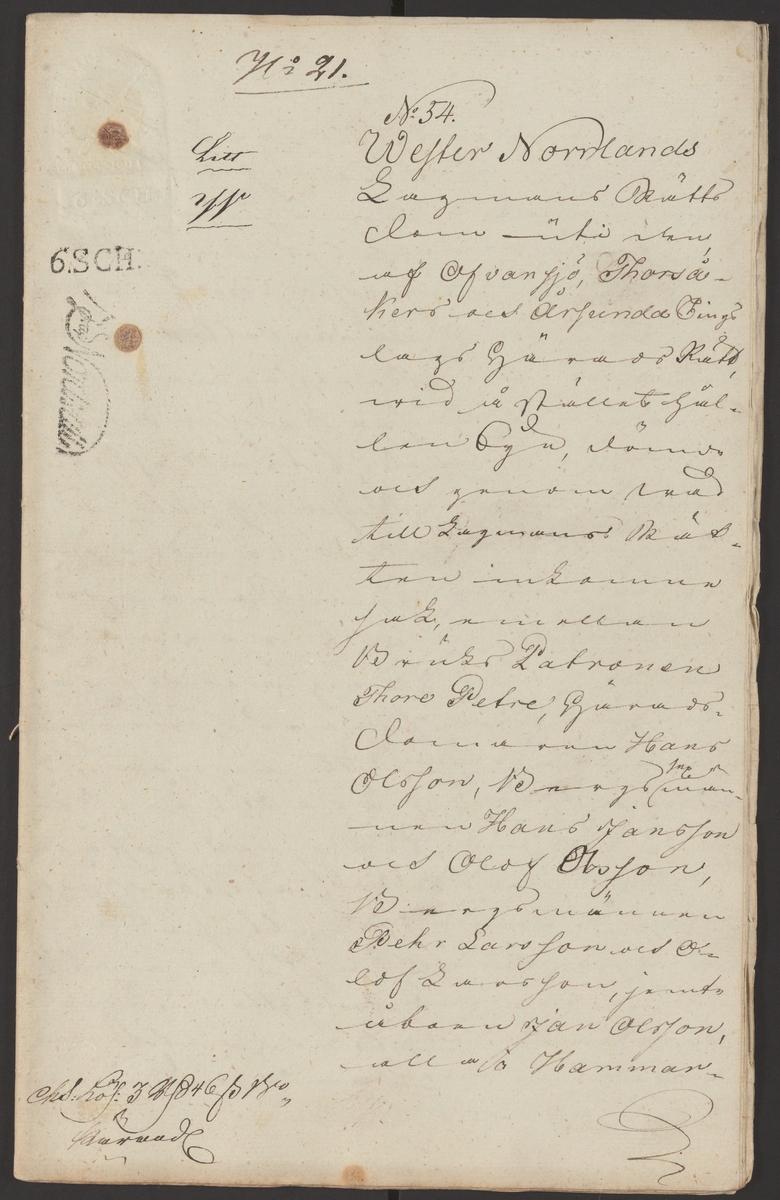 No 21.
No 54.
Litt
6.SCH.
Wester Norrlands
Lagmans Rätts
dom uti den
af Ofvansjö, Thorså-
kers och Årsunda Tings
lags Härads Rätt,
vid å stället hål-
len Syn, dömde
och genom vad
till Lagmans Rät-
ten inkomne
sak, emellan
Bruks Patronen
Thore Petre, Härads-
domaren Hans
Olsson, Bergsmän-
nen Hans Jansson
och Olof Olsson,
Bergsmännen
Pehr Larsson och O-
lof Larsson, jemte
åboen Jan Olsson,
alla i Hammar-